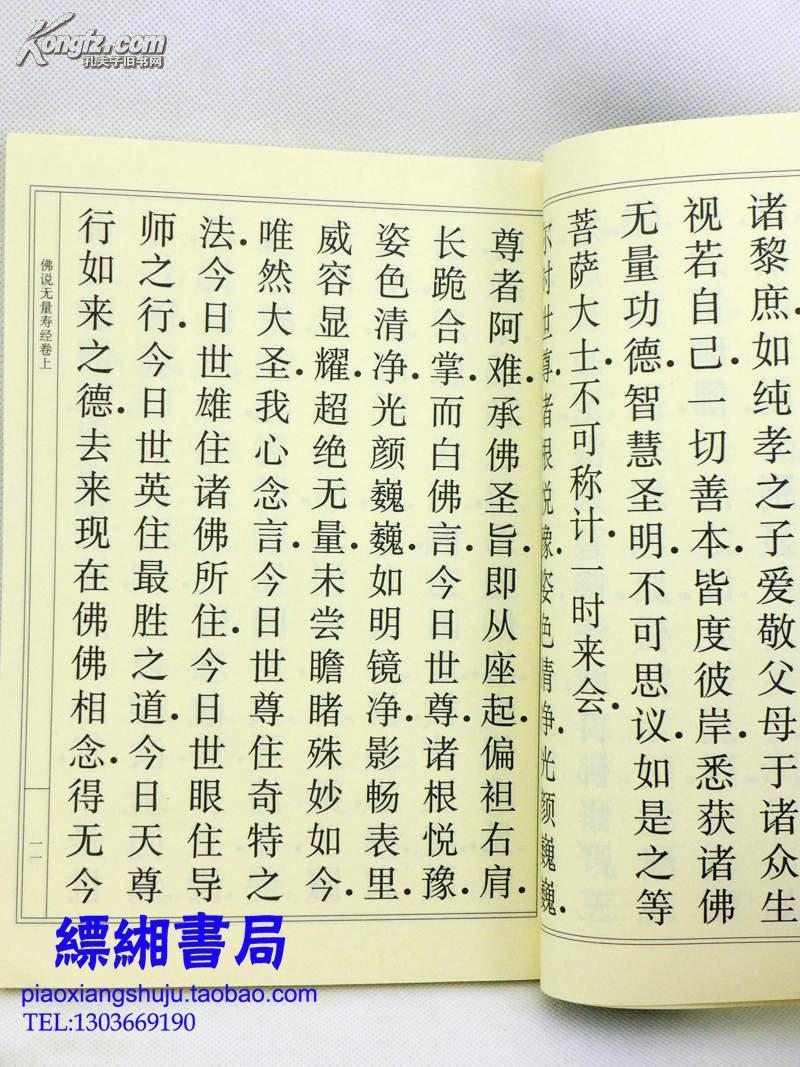 Kongfz.com
孔夫子旧书网
诸黎庶.如纯孝之子爱敬父母于诸众生
视若自己.一切善本.皆度彼岸.悉获诸佛
无量功德.智慧圣明.不可思议.如是之等
菩萨大士.不可称计.一时来会.
尔时世尊.诸根悦豫.姿色清净.光颜巍巍.
尊者阿难.承佛圣旨.即从座起.偏袒右肩.
长跪合掌.而白佛言.今日世尊.诸根悦豫.
姿色清净.光颜巍巍.如明镜净.影畅表里.
威容显耀.超绝无量.未尝瞻睹殊妙如今.
唯然大圣.我心念言.今日世尊住奇特之
法.今日世雄住诸佛所住.今日世眼住导
师之行.今日世英住最胜之道.今日天尊
行如来之德.去来现在佛佛相念.得无今
佛说无量寿经卷上
一一
缥缃書局
piaoxiangshuju.taobao.com
TEL:1303669190